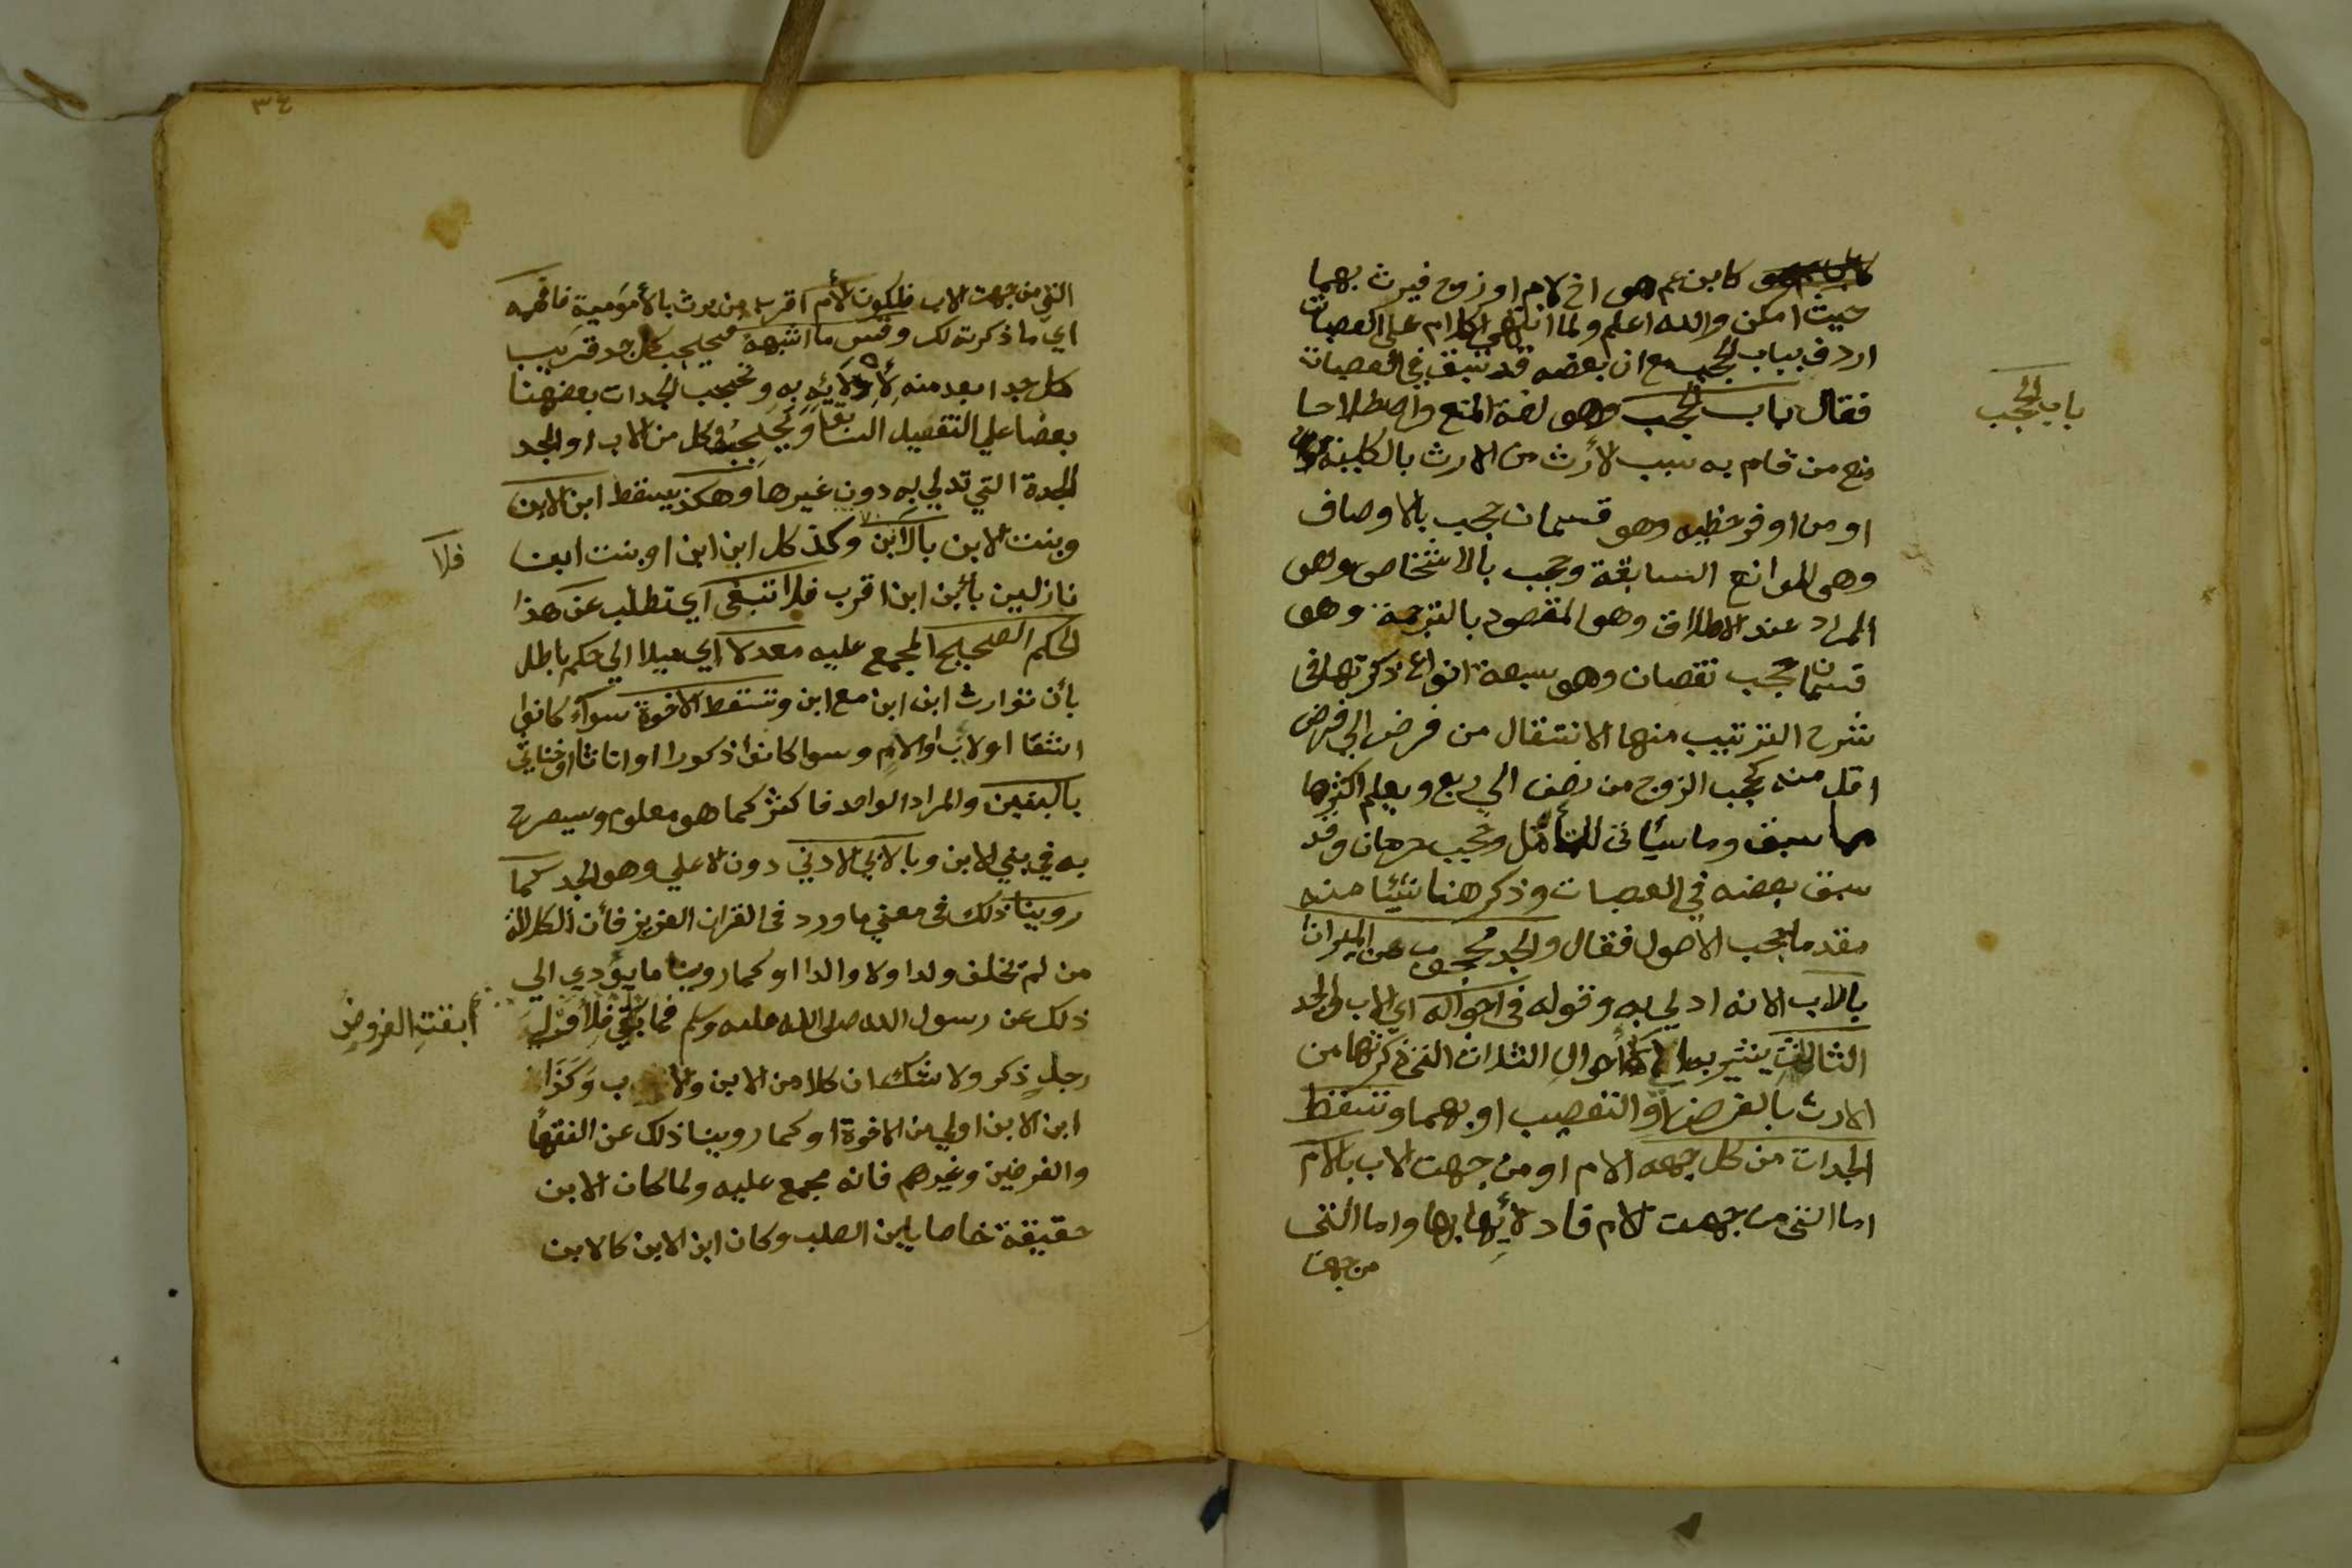 كابن عم هو اخ لام او زوج فيرث بهما
حيث امكن والله اعلم ولما انتهي الكلام علي العصبات
اردف بباب الحجب مع ان بعضه قد سبق في العصبات
فقال باب الحجب وهو لغة المنع واصطلاحا
باب الحجب
منع من قام به سبب الأرث من الارث بالكلية
او من اوفر حظيه وهو قسمان حجب بالاوصاف
وهي الموانع السابقة وحجب بالاشخاص وهو
المراد عند الاطلاق وهو المقصود بالترجمة وهو
قسمان حجب نقصان وهو سبعة انواع ذكرتها في
شرح الترتيب منها الانتقال من فرض الي فرض
اقل منه كحجب الزوج من نصف الي ربع ويعلم اكثرها
مما سبق وما سيأتي للمتأمل وحجب حرمان وقد
سبق بعضه في العصبات وذكر هنا شيئا منه
مقدما حجب الاصول فقال والجد محجوب عن الميراث
بالاب لانه ادلي به وقوله في احواله اي الاب والجد
الثالث يشير به الي الاحوال الثلاث التي ذكرتها من
الارث بالفرض او التعصيب او بهما وتسقط
الجدات من كل جهة الام او من جهت الاب بالام
اما التي من جهت الام فادلائها بها واما التي
من جهت
٣٤
التي من جهت الاب فلكون الأم اقرب من يرث بالأمومية فافهمه
اي ما ذكرته لك وقس ما اشبهه فيحجب كل جد قريب
كل جد ابعد منه لادلائه به وتحجب الجدات بعضهنا
بعضا علي التفصيل السابق ويحجب كل من الاب او الجد
الجدة التي تدلي به دون غيرها وهكذا يسقط ابن الابن
وبنت الابن بالابن وكذ كل ابن ابن او بنت ابن
فلا
نازلين بأبن ابن اقرب فلا تبغي اي تطلب عن هذا
الحكم الصحيح المجمع عليه معدلا اي ميلا الي حكم باطل
بأن توارث ابن ابن مع ابن وتسقط الاخوة سواء كانوا
اشقا او لاب او لام وسوا كانوا ذكورا او اناثا او خناثي
بالبنين والمراد الواحد فاكثر كما هو معلوم وسيصرح
به في بني الابن وبالاب الادني دون الاعلي وهو الجد كما
روينا ذلك في معني ما ورد في القران العزيز فأن الكلالة
من لم يخلف ولدا ولا والدا او كما روينا ما يؤدي الي
ذلك عن رسول الله صلى الله عليه وسلم فما بقي فلأولي
أبقت الفروض
رجل ذكر ولا شك ان كلا من الابن والاب وكذا
ابن الابن اولي من الاخوة او كما روينا ذلك عن الفقهأ
والفرضين وغيرهم فانه مجمع عليه ولما كان الابن
حقيقة خاصا بابن الصلب وكان ابن الابن كالابن